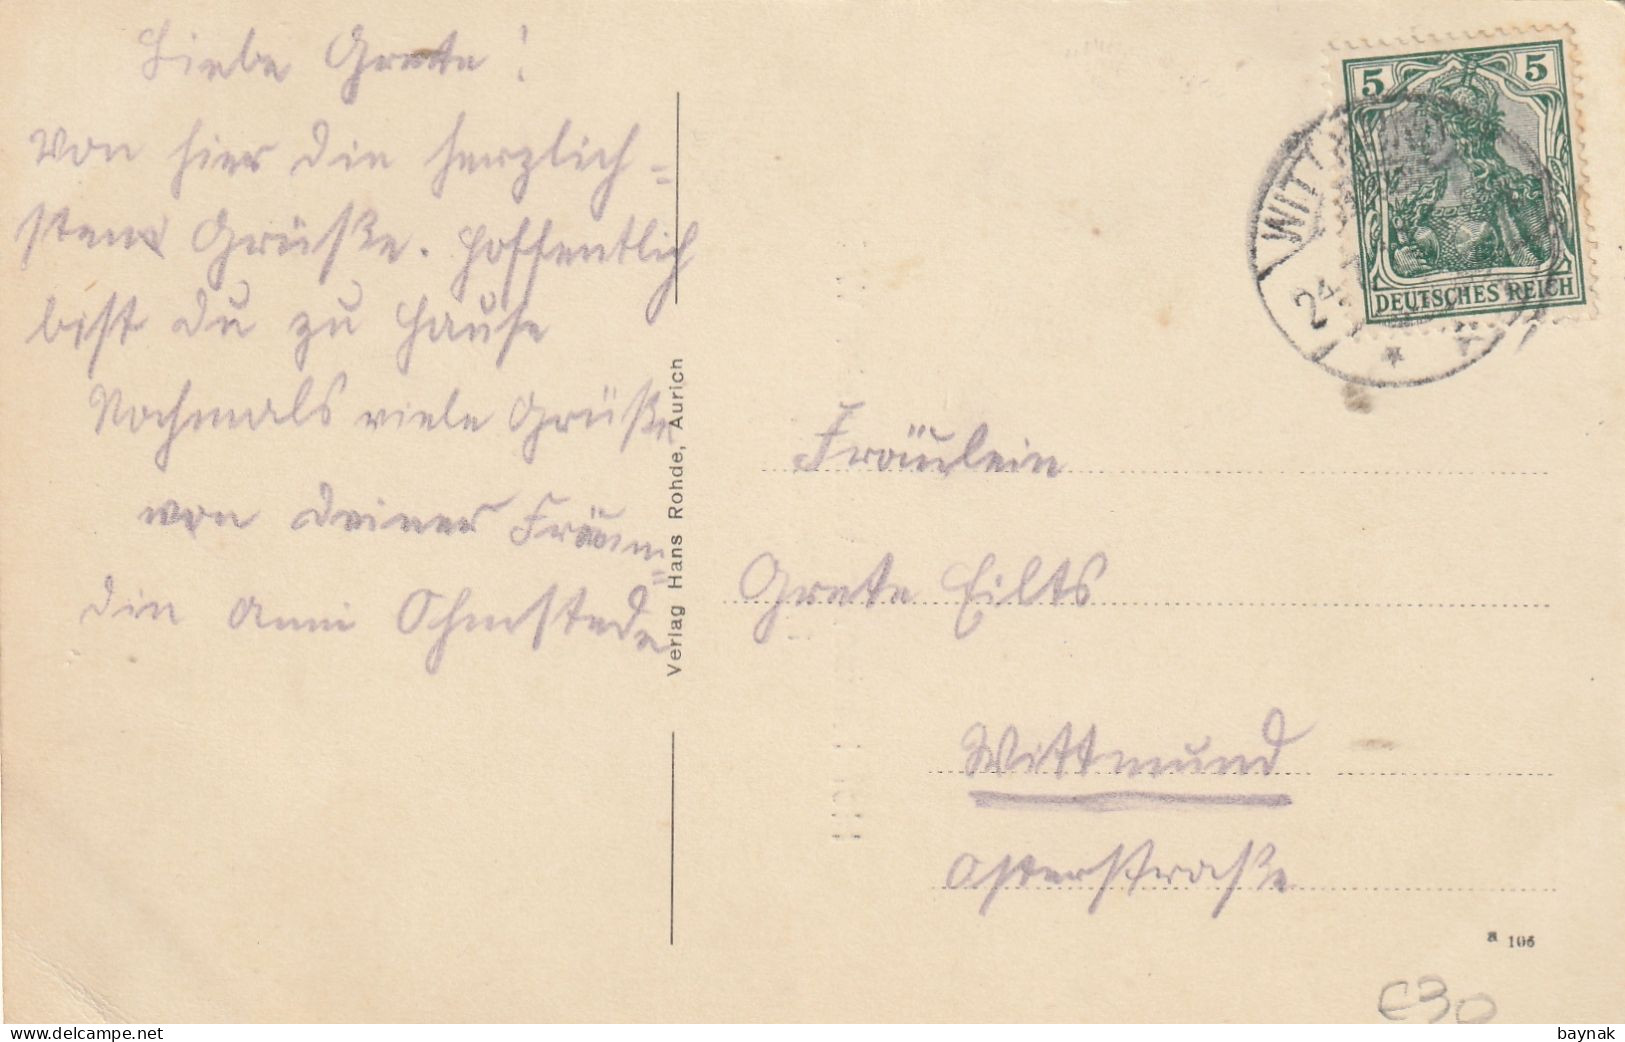 Liebe Grete!
Von hier die herzlich=
sten Grüße. Hoffentlich
bist du zu Hause
Nochmals viele Grüße
von deiner Freun=
din Anni Ohmstede
Verlag Hans Rohde, Aurich
5 5
DEUTSCHES REICH
WITTMUND
24
Fräulein
Grete Eilts
Wittmund
Osterstraße
a 106
€30
baynak